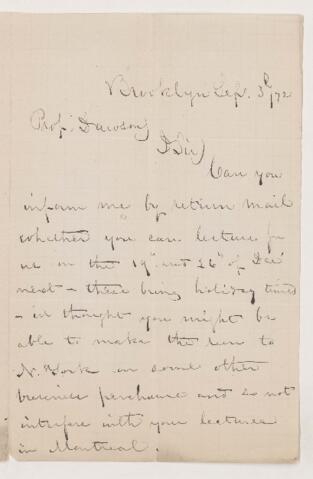 Brooklyn Sep. 3d /72
Prof. Dawson
D Sir
Can you
inform me by return mail
whether you can lecture for
us on the 19" and 26" of Dec
next - these being holiday times
- it thought you might be
able to make the run to
N. York on some other
business perchance and so not
intrefere with your lectures
in Montreal.